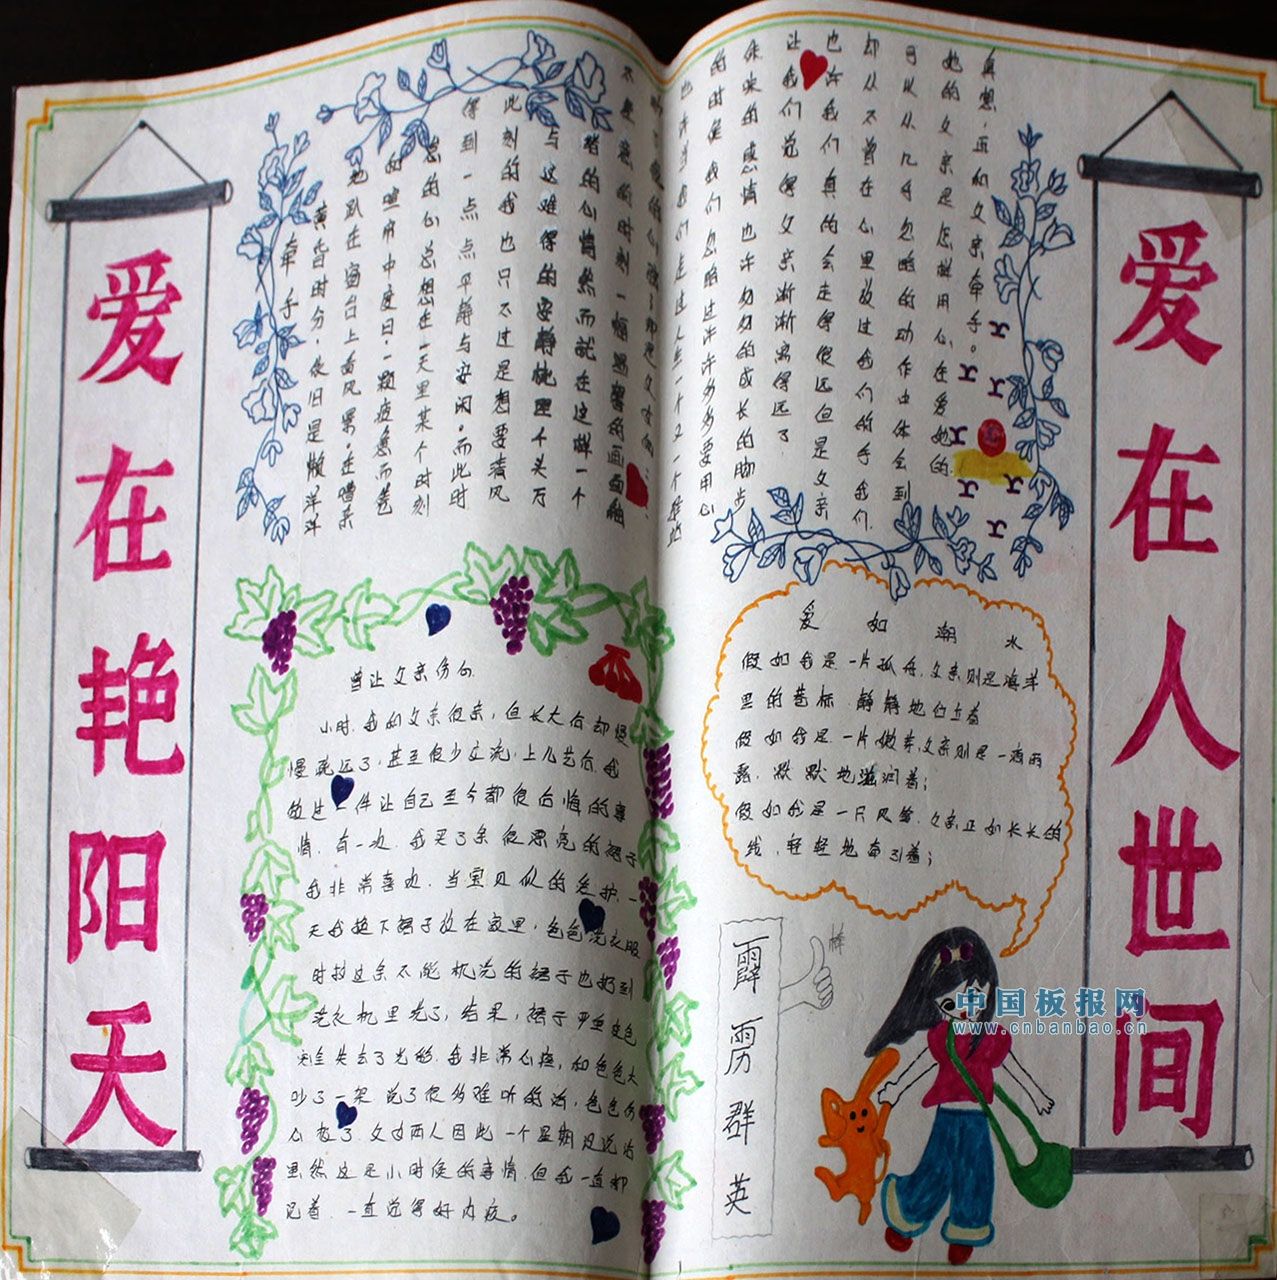 爱在艳阳天
爱在人世间
牵手
黄昏时分，依旧是懒洋洋
地趴在窗台上看风景。在嘈杂
的喧闹中度日，一颗疲惫而苍
老的心总想在一天里某个时刻
得到一点点平静与安闲。而此时
此刻的我也只不过是想要清风
与这难得的安静梳理千头万
绪的心情然而就在这样一个
不是
的时刻一幅温馨的画面触
也许当我们走过人生一个又一个驻地
的时候我们忽略过许许多多要用心
体味的感情也许匆匆的成长的脚步
让我们觉得父亲渐渐离得远了
也许我们真的会走得很远但是父亲
却从不曾在心里放过我们的手我们
可以从几乎忽略的动作中体会到
她的父亲是怎样用心在爱她的
真想，再和父亲牵手。
曾让父亲伤心
小时，我和父亲很亲，但长大后却慢
慢疏远了，甚至很少交流，上幼艺后，我
做过一件让自己至今都很后悔的事
情，有一次，我买了条很漂亮的裙子
我非常喜欢，当宝贝似的爱护，一
天我换下裙子放在家里，爸爸洗衣服
时把这条不能机洗的裙子也扔到
洗衣机里洗了，结果，裙子严重变色
完全失去了光彩，我非常心疼，和爸爸大
吵了一架说了很多难听的话，爸爸伤
心极了，父女两人因此一个星期没说话
虽然这是小时候的事情，但我一直都
记着，一直觉得好内疚。
爱如潮水
假如我是一片孤舟，父亲则是海洋
里的航标，静静地伫立着
假如我是一片嫩芽，父亲则是一滴雨
露，默默地滋润着；
假如我是一片风筝，父亲正如长长的
线，轻轻地牵引着；
棒
霹雳群英
中国板报网
www.cnbanbao.cn